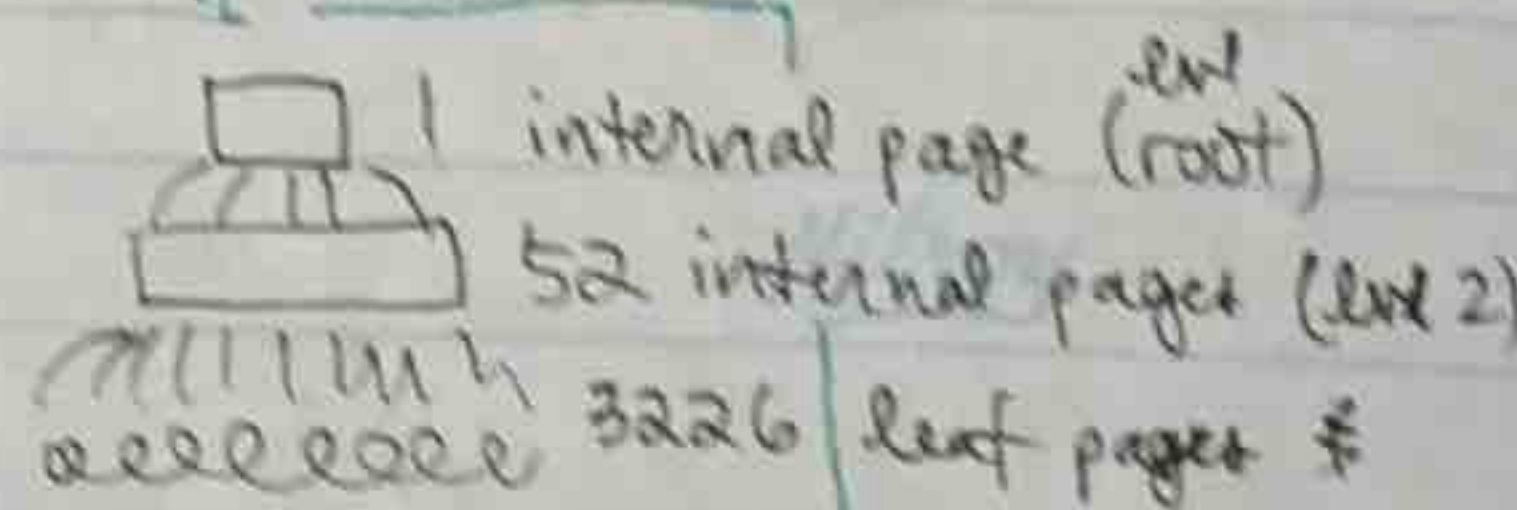 lvl
1 internal page (root)
52 internal pages (lvl 2)
3226 leaf pages *